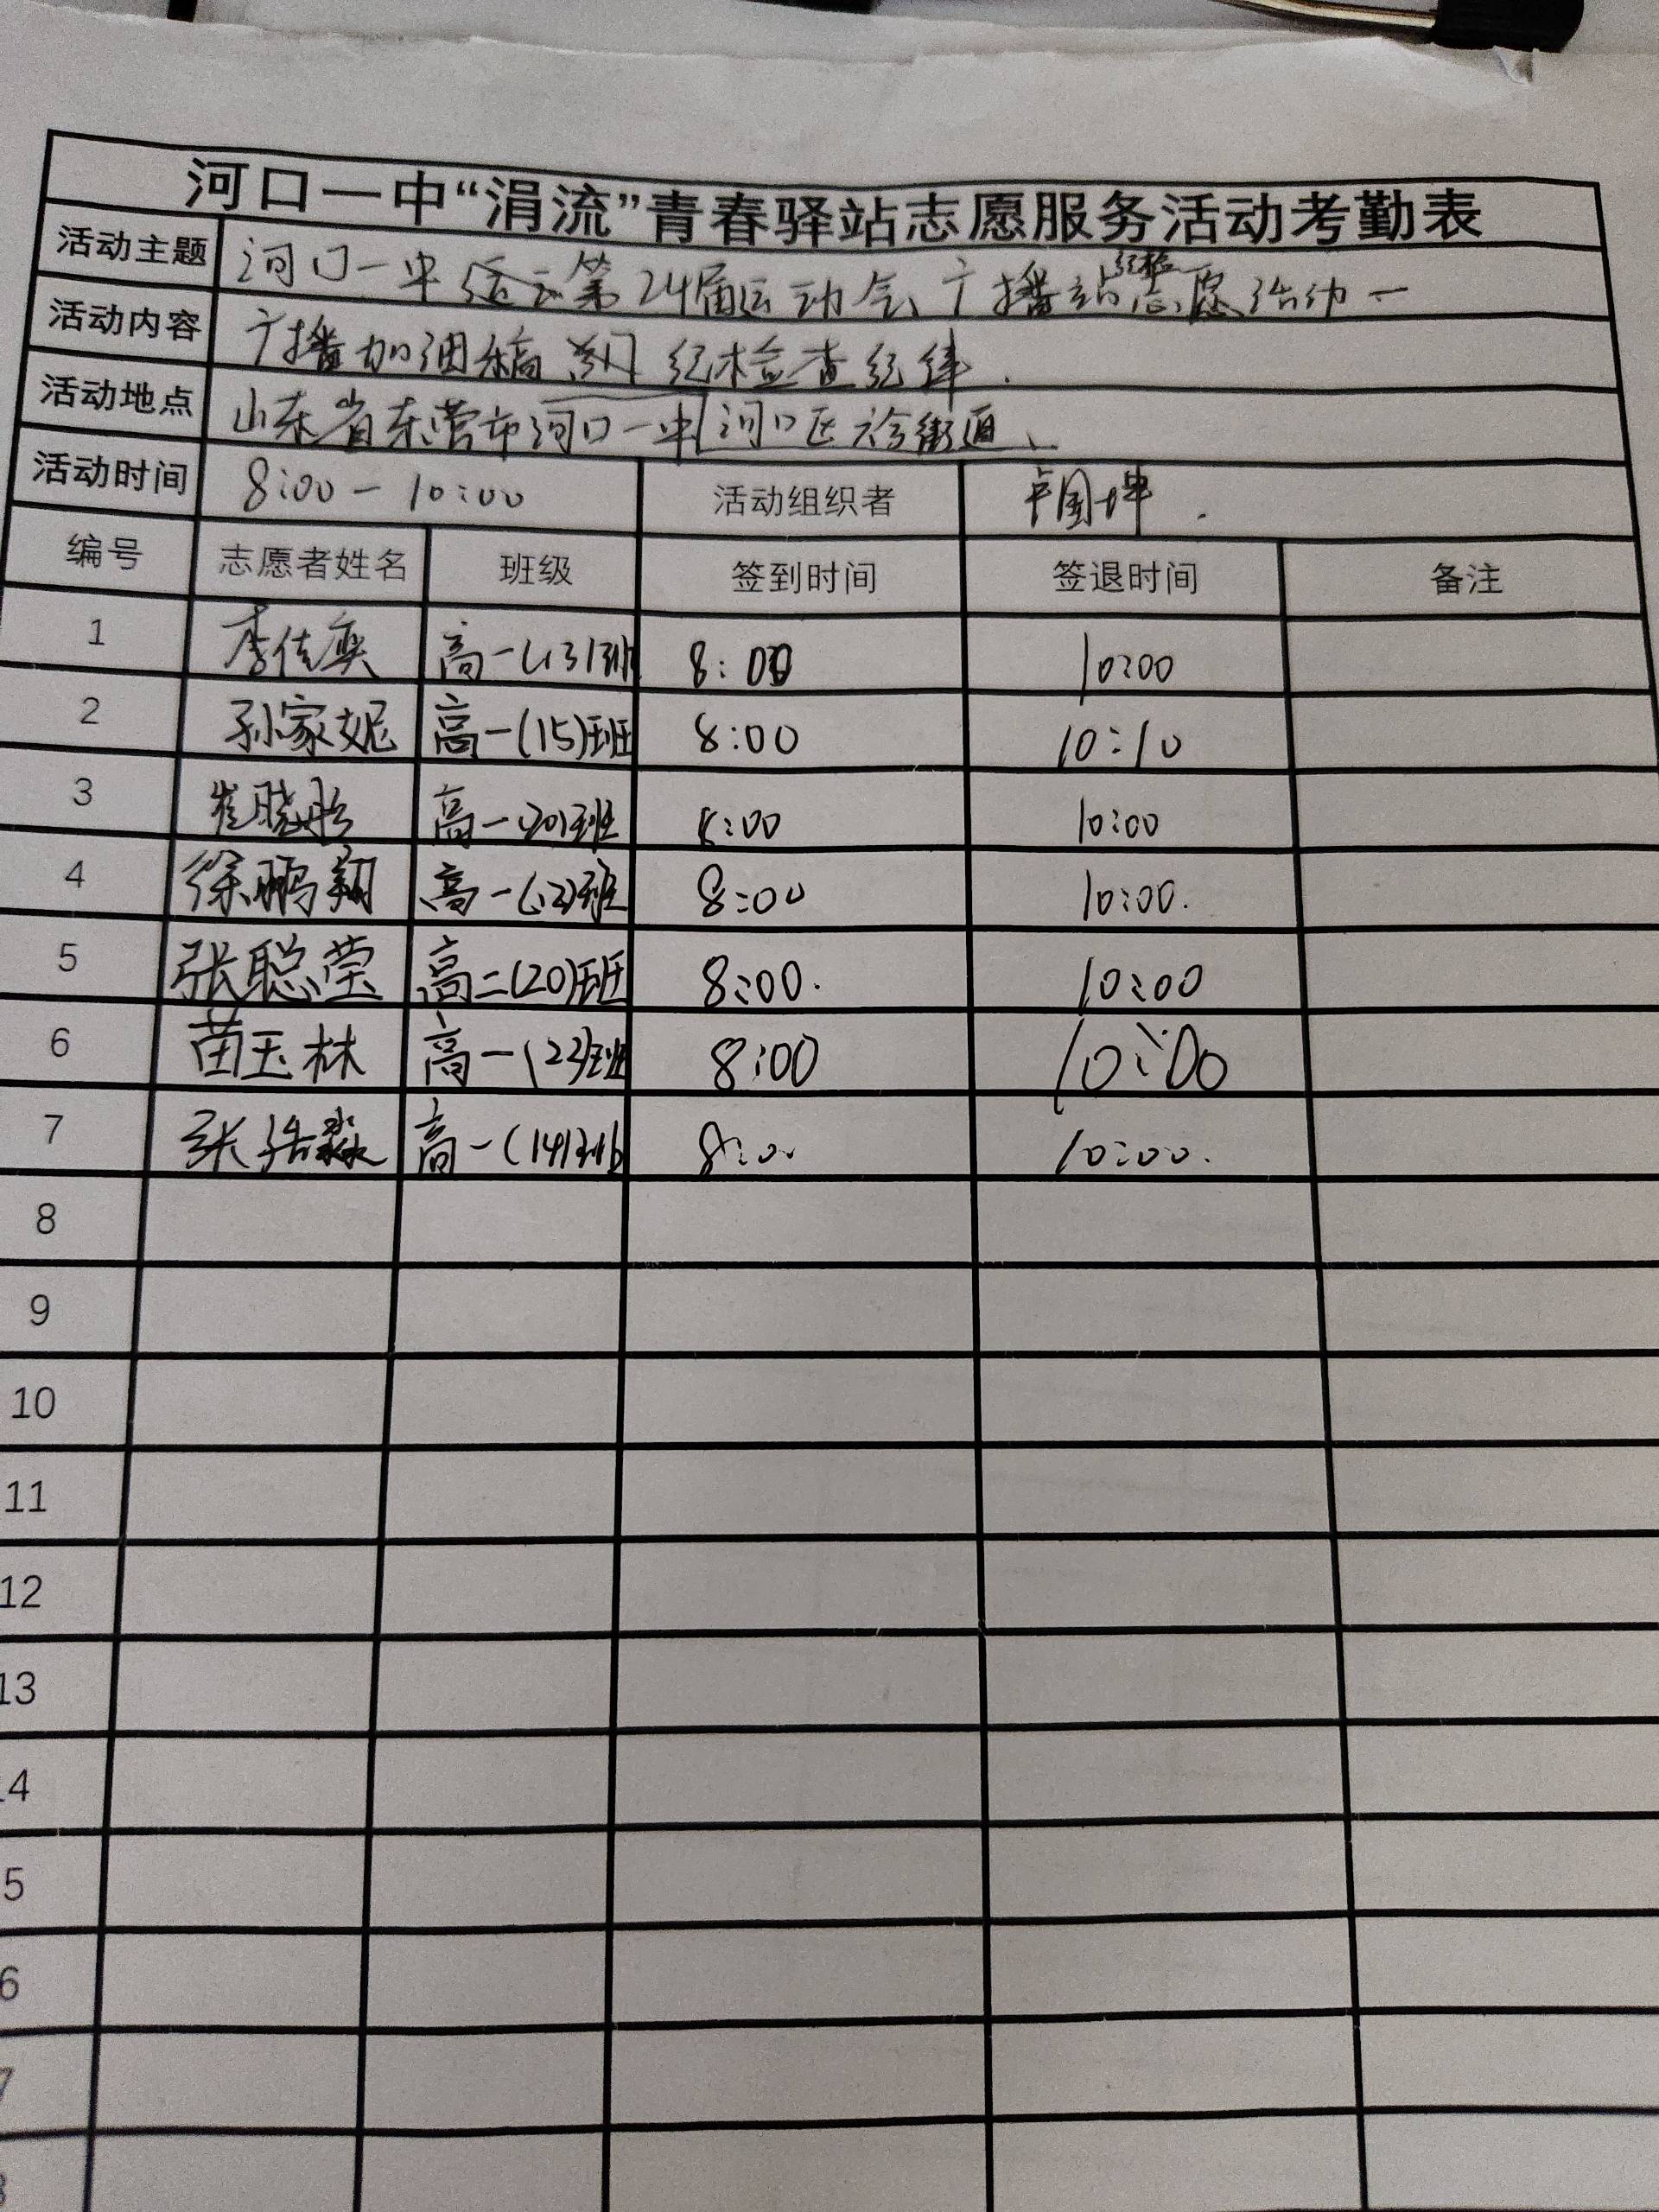 河口一中“涓流”青春驿站志愿服务活动考勤表
活动主题 河口一中第24届运动会广播站纪检志愿活动一
活动内容 广播加油稿 纪检检查纪律.
活动地点 山东省东营市河口一中河口区街道、
活动时间 8:00-10:00 活动组织者
编号 志愿者姓名 班级 签到时间 签退时间 备注
1 李佳奕 高一(13)班 8:00 10:00
2 孙家妮 高一(15)班 8:00 10:10
3 崔晓彤 高一(20)班 8:00 10:00
4 徐鹏翔 高一(12)班 8:00 10:00.
5 张聪莹 高二(20)班 8:00. 10:00
6 苗玉林 高一(22)班 8:00 10:00
7 张浩淼 高一(14)班 8:00 10:00.
8
9
10
11
12
13
4
5
6
7